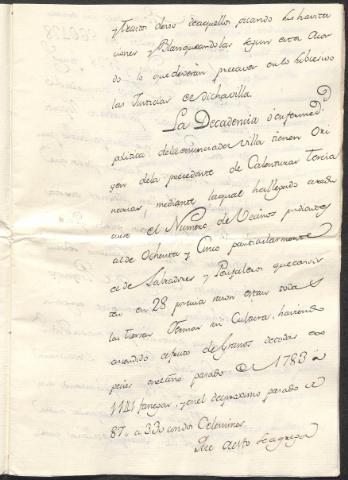 y Texos deros deaquellos, picando las havita
ciones y Blanqueandolas segun esta Acor
do lo que deverán precaver en lo subcesivo
las Justicias de Dicha villa.
La Decadencia ó enfermedᵈ
politica dela enunciada villa tienen Ori
gen dela precedente de Calenturas Tercia
narias, mediante la qual ha llegado aredu
cirse el Numero de Vecinos pudientes
al de Ochenta y Cinco particularmente
el de Labradores y Pensaleros que consis
ten en 28 por cuia razon estan todas
las tierras Yermas sin Cultura, haviendo
asendido el fruto de Granos de todas es
pecies en el año pasado de 1783 a
1141 fanegas, y en el de proximo pasado de
87. a 330 con dos Celemines.
Que acosto se agrega